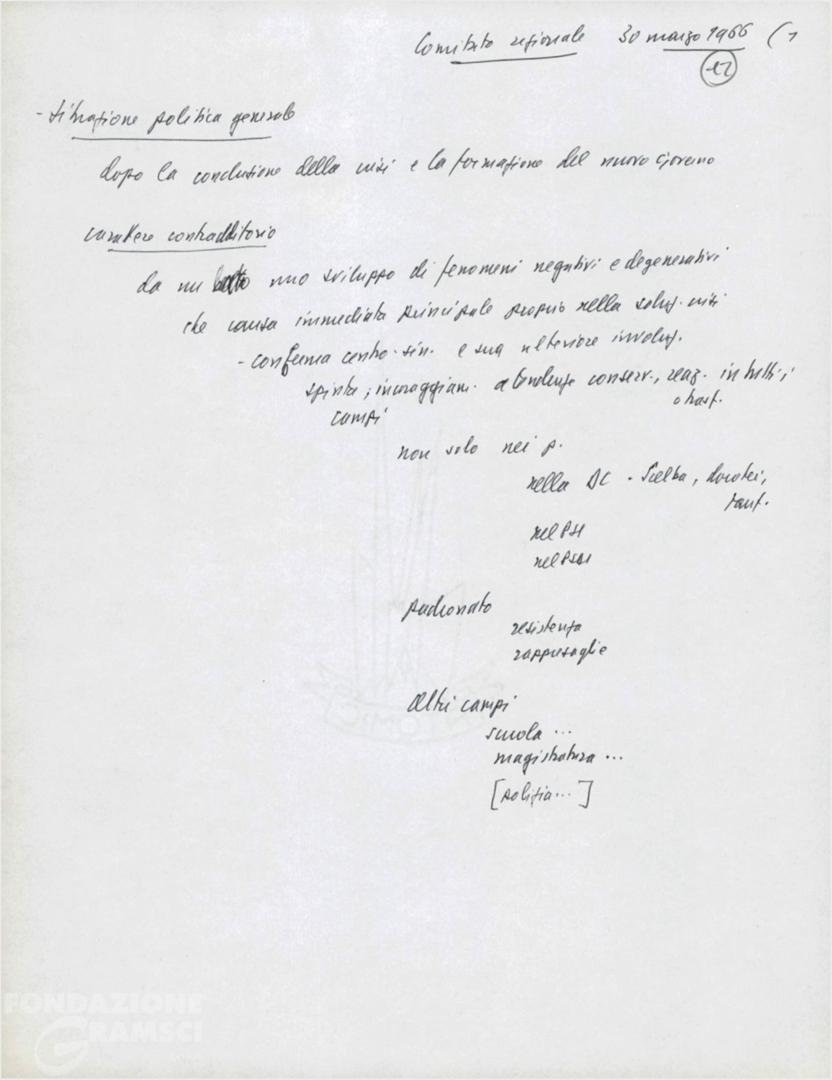 Comitato regionale 30 marzo 1966 (1
12
- Situazione politica generale
dopo la conclusione della crisi e la formazione del nuovo Governo
carattere contraddittorio
da un lato uno sviluppo di fenomeni negativi e degenerativi
che causa immediata principale proprio nella soluz. crisi
- conferma centro-sin. e sua ulteriore involuz.
spinta, incoraggiam. a tendenze conserv., reaz. in tutti i
o trasf.
campi
non solo nei p.
nella DC - Scelba, dorotei,
fanf.
nel PSI
nel PSDI
padronato
resistenza
rappresaglie
altri campi
scuola ...
magistratura ...
[polizia ...]
FONDAZIONE
GRAMSCI